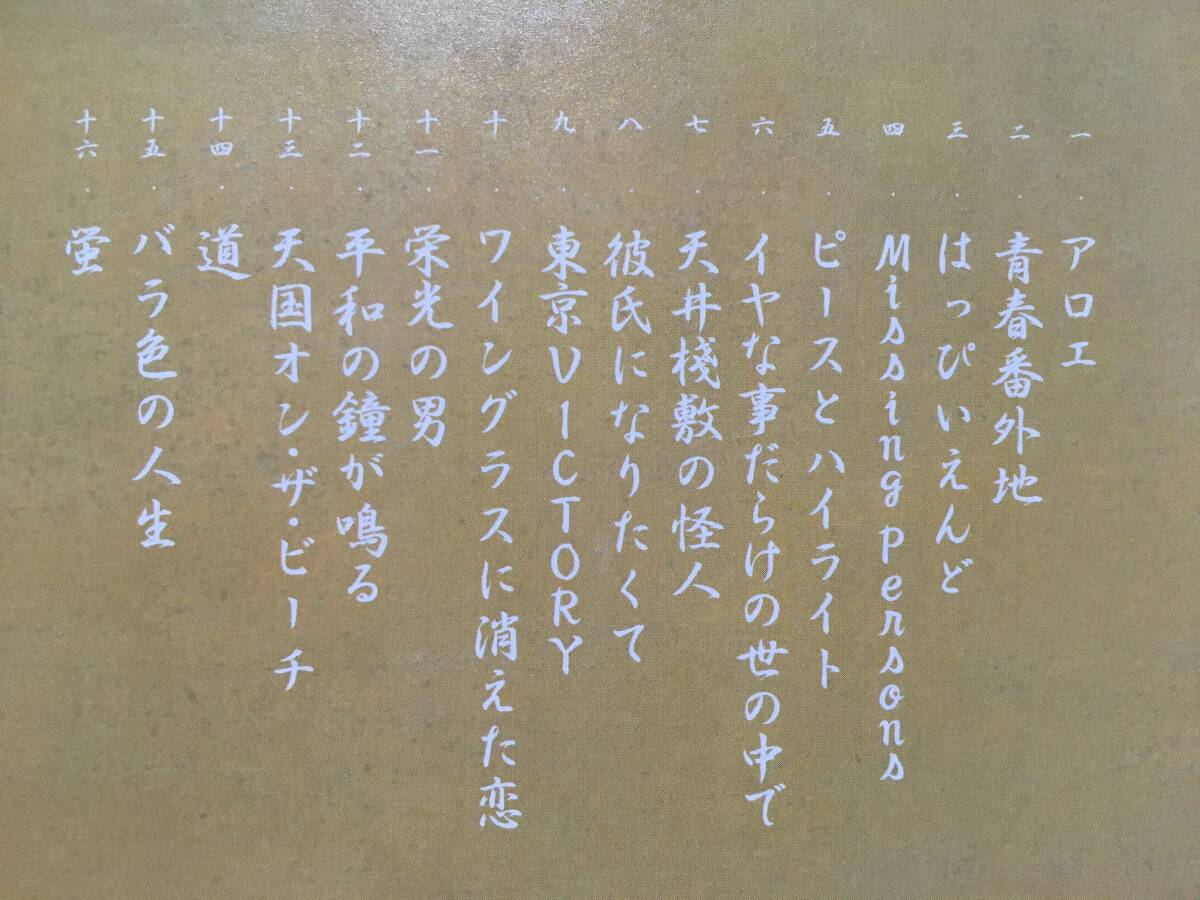 一.アロエ
二.青春番外地
三.はっぴいえんど
四.Missing persons
五.ピースとハイライト
六.イヤな事だらけの世の中で
七.天井棧敷の怪人
八.彼氏になりたくて
九.東京VICTORY
十.ワイングラスに消えた恋
十一.栄光の男
十二.平和の鐘が鳴る
十三.天国オン・ザ・ビーチ
十四.道
十五.バラ色の人生
十六.蛍